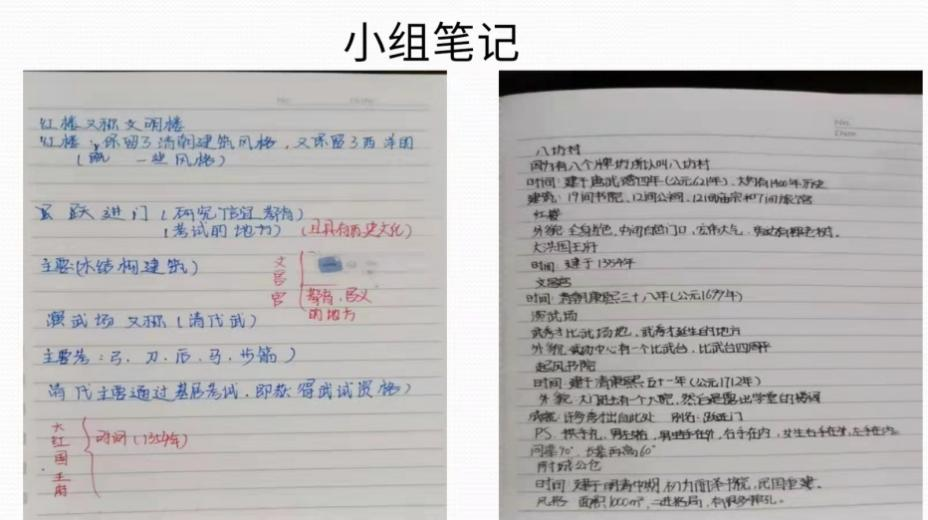 小组笔记
红楼又称文明楼
红楼:保留了清朝建筑风格,又保留了西洋国
一些风格)
跃进门(研究 教育)
(考试的地方)(且具有历史文化)
主要(木结构建筑)
文昌宫
教育,
的地方
演武场 又称(清代武)
主要考:弓、刀、石、马、步箭)
清代主要通过基层考试,即获得武试资格)
大
国王府
时间(1354年)
八坊村
因为有八个牌坊所以叫八坊村
时间:建于唐武德四年(公元621年),大约有1400年历史
建筑:19间书院、12间公祠、12间庙宗和7间旅馆
红楼
外貌:全身红色,中间白色门口,宏伟大气,
大汉国王府
时间:建于1354年
文昌宫
时间:清朝康熙三十八年(公元1699年)
演武场
武考才比武场地,武秀才诞生的地方
外貌:武场中心有一个比武台,比武台四周平
起凤书院
时间:建于清康熙五十一年(公元1712年)
外貌:大门进去有一个大院,然后是
成就:许多秀才出自此处 别名:跃进门
PS:拱手礼,男左 右手在内,女生右手在外,左手在内。
同辈90°,长辈 60°
附城公仓
时间:建于明清中期,初为 书院,民国重建。
风格:面积1000m²,二进格局,